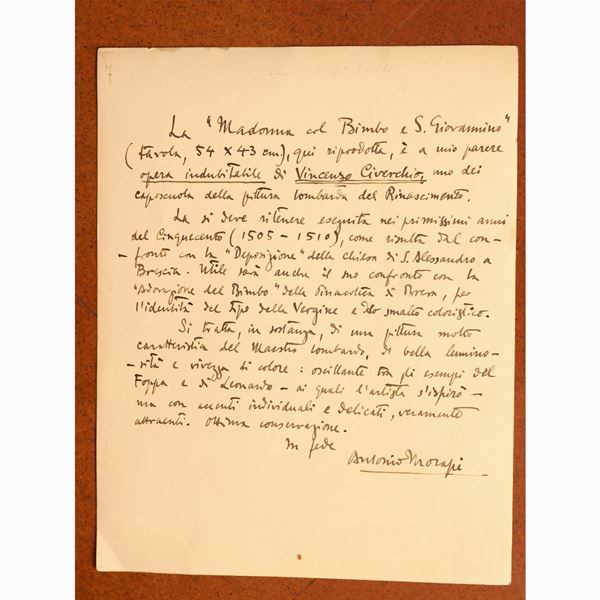 La "Madonna col Bimbo e S. Giovannino"
(tavola, 54 x 43 cm), qui riprodotta, è a mio parere
opera indubitabile di Vincenzo Civerchio, uno dei
caposcuola della pittura lombarda del Rinascimento.
La si deve ritenere eseguita nei primissimi anni
del Cinquecento (1505 - 1510), come risulta dal con-
- fronto con la "Deposizione" della chiesa di S. Alessandro a
Brescia. Utile sarà anche il suo confronto con la
"Adorazione del Bimbo" della Pinacoteca di Brera, per
l'identità del tipo della Vergine e dello smalto coloristico.
Si tratta, in sostanza, di una pittura molto
caratteristica del Maestro lombardo, di bella lumino-
- sità e vivezza di colore: oscillante tra gli esempi del
Foppa e di Leonardo - ai quali l'artista s'ispirò -
ma con accenti individuali e delicati, veramente
attraenti. Ottima conservazione.
In fede
Antonio Morassi